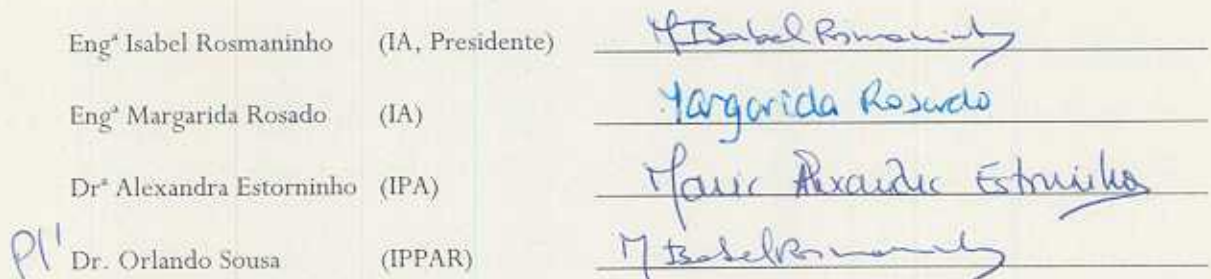 Engª Isabel Rosmaninho (IA, Presidente) M Isabel Rosmaninho
Engª Margarida Rosado (IA) Margarida Rosado
Drª Alexandra Estorninho (IPA) Maria Alexandra Estorninho
Pl' Dr. Orlando Sousa (IPPAR) M Isabel Rosmaninho